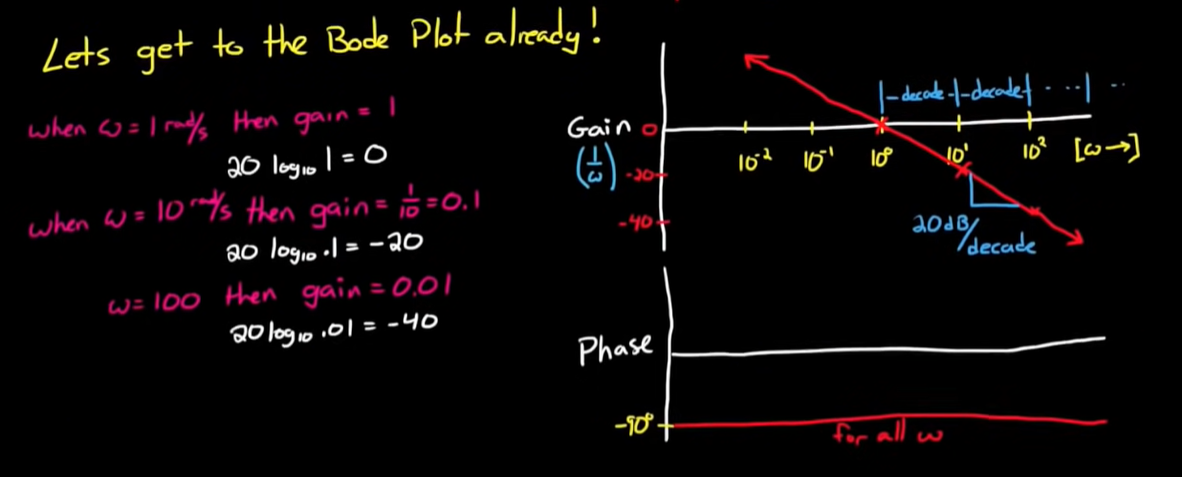 Lets get to the Bode Plot already!
when ω = 1 rad/s then gain = 1
20 log₁₀ 1 = 0
when ω = 10 rad/s then gain = 1/10 = 0.1
20 log₁₀ .1 = -20
ω = 100 then gain = 0.01
20 log₁₀ .01 = -40
|-decade-|-decade-| - - - -| - -
Gain 0
(1/ω)
-20
-40
10⁻² 10⁻¹ 10⁰ 10¹ 10² [ω→]
20 dB/decade
Phase
-90°
for all ω